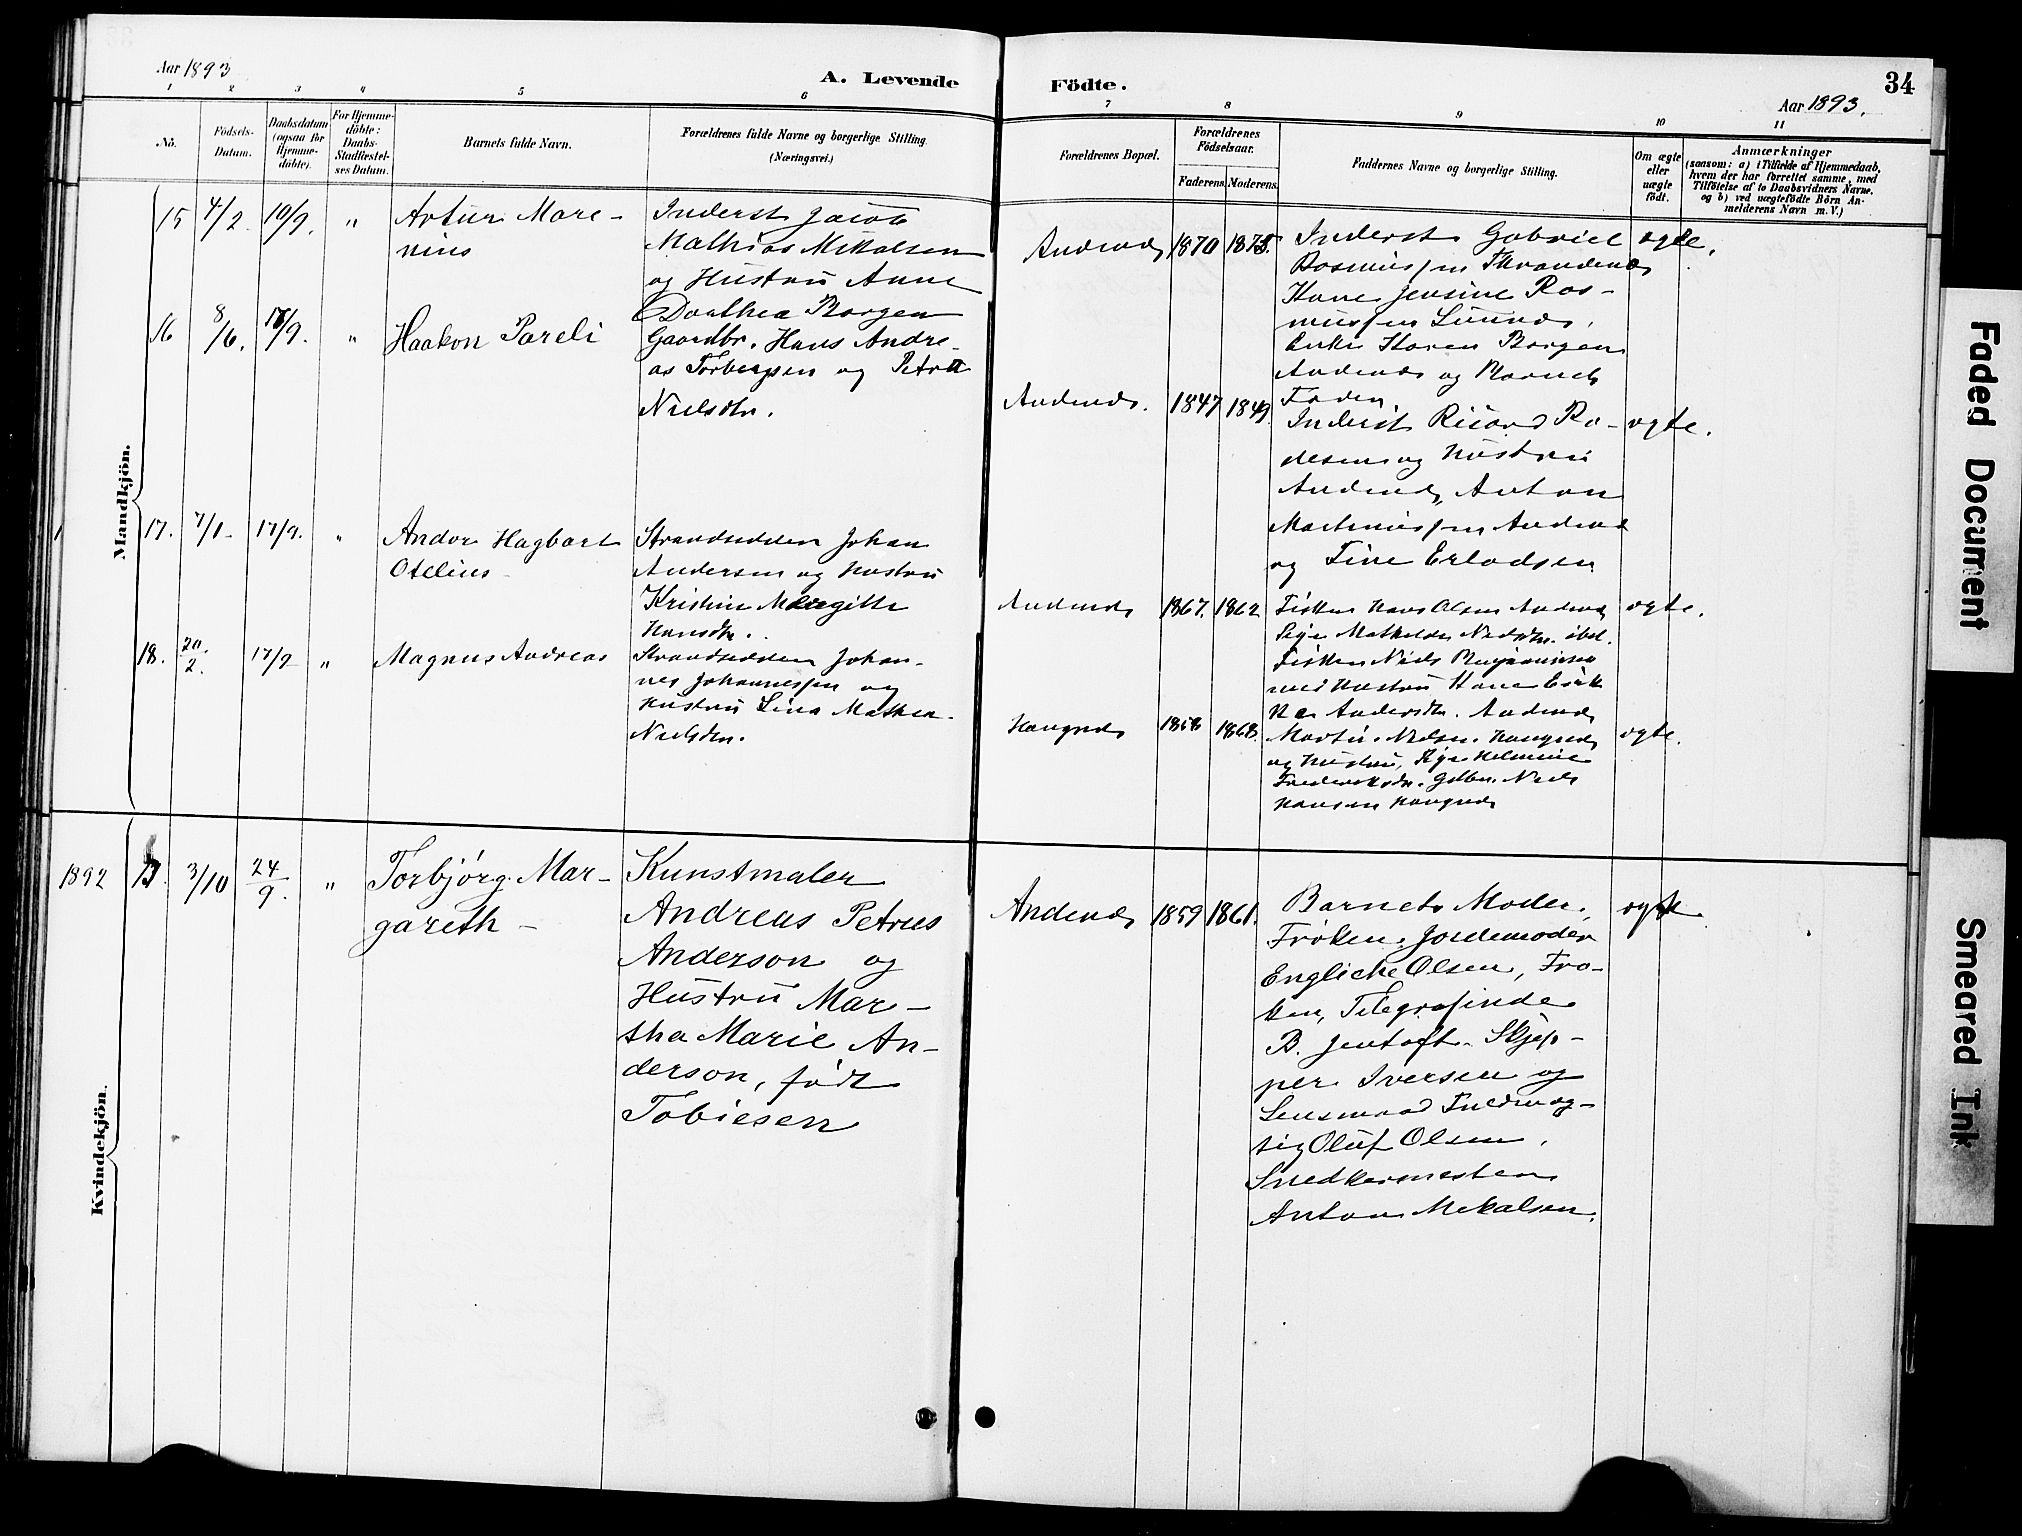 Aar 1893
A. Levende
Fødte.
34
Aar 1893.
1 2 3 4 5 6 7 8 9 10 11
No.
Födsels-
Datum.
Daabsdatum
(ogsaa for
Hjemme-
döbte).
For Hjemme-
döbte:
Daabs-
Stadfæstel-
ses Datum.
Barnets fulde Navn.
Forældrenes fulde Navne og borgerlige Stilling.
(Næringsvei.)
Forældrenes Bopæl.
Forældrenes
Födselsaar.
Faderens. Moderens.
Faddernes Navne og borgerlige Stilling.
Om ægte
eller
uægte
födt.
Anmærkninger
(saasom: a) i Tilfælde af Hjemmedaab,
hvem der har forrettet samme, med
Tilföielse af to Daabsvidners Navne,
og b) ved uægtefödte Börn An-
melderens Navn m. V.)
Mandkjön.
15 4/2 10/9. "
Artur Mare-
nius
Inderst Jacob
Mathias Mikalsen
og Hustru Anne
Dorthea Borgen
Andenæs 1870 1875.
Inderst Gabriel
Rasmussen
Kone Jensine Ras-
mussen
Enke Karen Borgen
Andenæs og Barnets
Fader
ægte.
16 8/6. 18/9. "
Haakon Pareli
Gaardbr. Hans Andre-
as Torbergsen og Petra
Nielsdtr.
Andenæs. 1847 1849.
Inderst Rikard
og Hustru
Andenæs, Anton
Martinussen Andenæs
og Tine Erlodsen
ægte.
17. 7/1. 17/9. "
Andor Hagbart
Otelius
Strandsidder Johan
Andersen og Hustru
Kristine Margitte
Hansdtr.
Andenæs 1867. 1862
Fisker Hans Olsen Andenæs
Pige Mathilde Nielsdtr. ibd.
Fisker Niels Benjaminsen
med Hustru
Andersdtr. Andenæs
ægte.
18. 20/2. 17/9 "
Magnus Andreas
Strandsidder Johan-
nes Johannessen og
Hustru Lina Mathea
Nielsdtr.
Haugnæs 1858 1868.
Martin Nielsen. Haugnæs
og Hustru, Pige Helmine
Frederiksdtr. Gdbr. Niels
Hansen Haugnæs
ægte.
Kvindekjön.
1892 13. 3/10 24/9. "
Torbjørg Mar-
gareth
Kunstmaler
Andreas Petrus
Anderson og
Hustru Mar-
tha Marie An-
derson, født
Tobiesen
Andenæs 1859 1861.
Barnets Moder,
Frøken, Jordemoder
Engliche Olsen, Frø-
ken, Telegrafinde
B. Jentoft. Skjep-
per Iversen og
Lensmand Fuldmæg-
tig Oluf Olsen,
Snedkermester
Anton Mikalsen.
ægte.
Faded Document
Smeared Ink